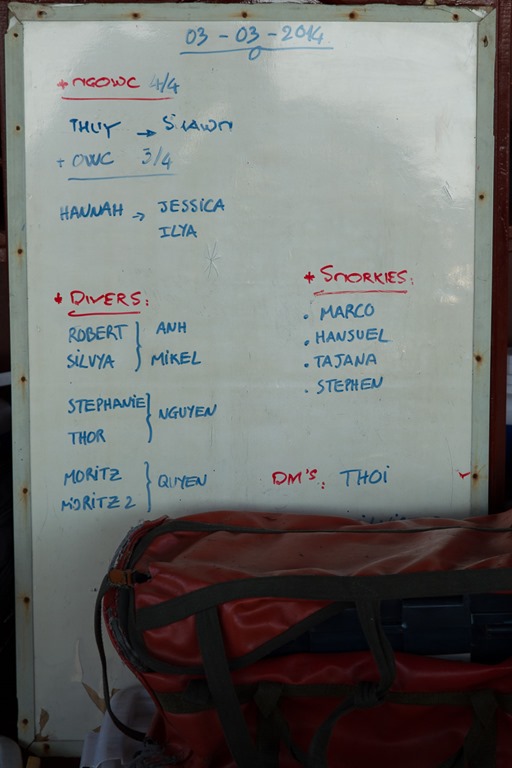 03 - 03 - 2014
* NGOWC 4/4
THUY → SHAWN
+ OWC 3/4
HANNAH → JESSICA
ILYA
* DIVERS:
ROBERT } ANH
SILVYA } MIKEL
STEPHANIE } NGUYEN
THOR
MORITZ } QUYEN
MORITZ 2
* SNORKIES:
. MARCO
. HANSUEL
. TAJANA
. STEPHEN
DM'S: THOI